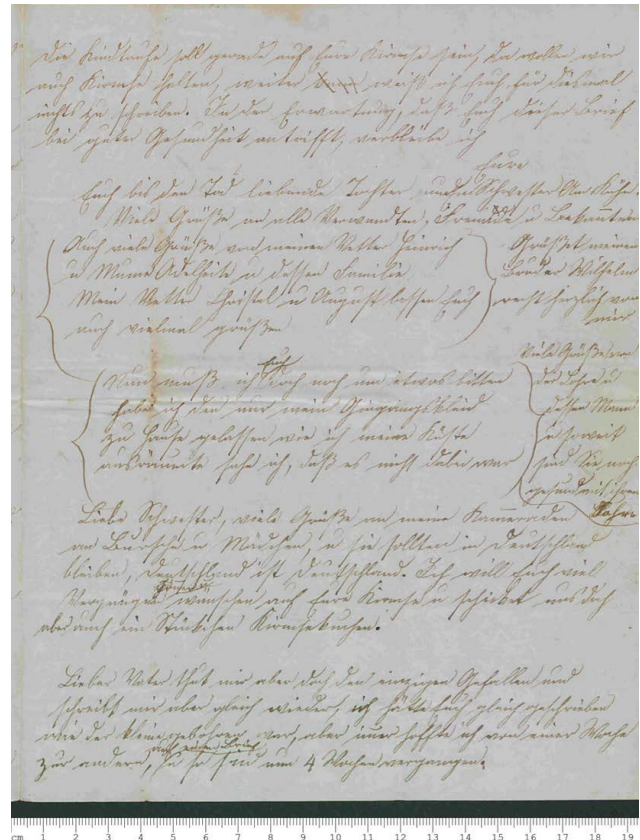 Die Kindtaufe soll gerade auf Eure Kirmse sein, da wollen wir
auch Kirmse halten, weiter weiß ich Euch für diesmal
nichts zu schreiben. In der Erwartung, daß Euch dieser Brief
bei guter Gesundheit antrifft, verbleibe ich
Eure
Euch bis den Tod liebende Tochter und Schwester
Viele Grüße an alle Verwandten, Freunde u Bekannten
Auch viele Grüße von meinen Vetter Heinrich
u Mume Adelheite u dessen Familie
Mein Vetter Christel u August lassen Euch
auch vielmal grüßen
Grüßet meinen
Bruder Wilhelm
recht herzlich von
mir
Nun muß ich Euch doch noch um etwas bitten
habe ich den nur mein
zu Hause gelassen wie ich meine Kiste
ausräumte sahe ich, daß es nicht dabei war
Viele Grüße von
der u
dessen Mann
u soweit
sind Sie noch
gesund mit ihren
Liebe Schwester, viele Grüße an meine Kammeraden
an Bursche u Mädchen, u sie sollten in Deutschland
bleiben, Deutschland ist Deutschland. Ich will Euch viel
Vergnügen wünschen auf Eure Kirmse u schicket uns doch
aber auch ein Stückchen Kirmsekuchen.
Lieber Vater thut mir aber doch den einzigen Gefallen und
schreibt mir aber gleich wieder, ich hätte Euch gleich geschrieben
wie der kleine gebohren war, aber immer hoffte ich von einer Woche
auf einen Brief
zur andern, u so sind nun 4 Wochen vergangen.